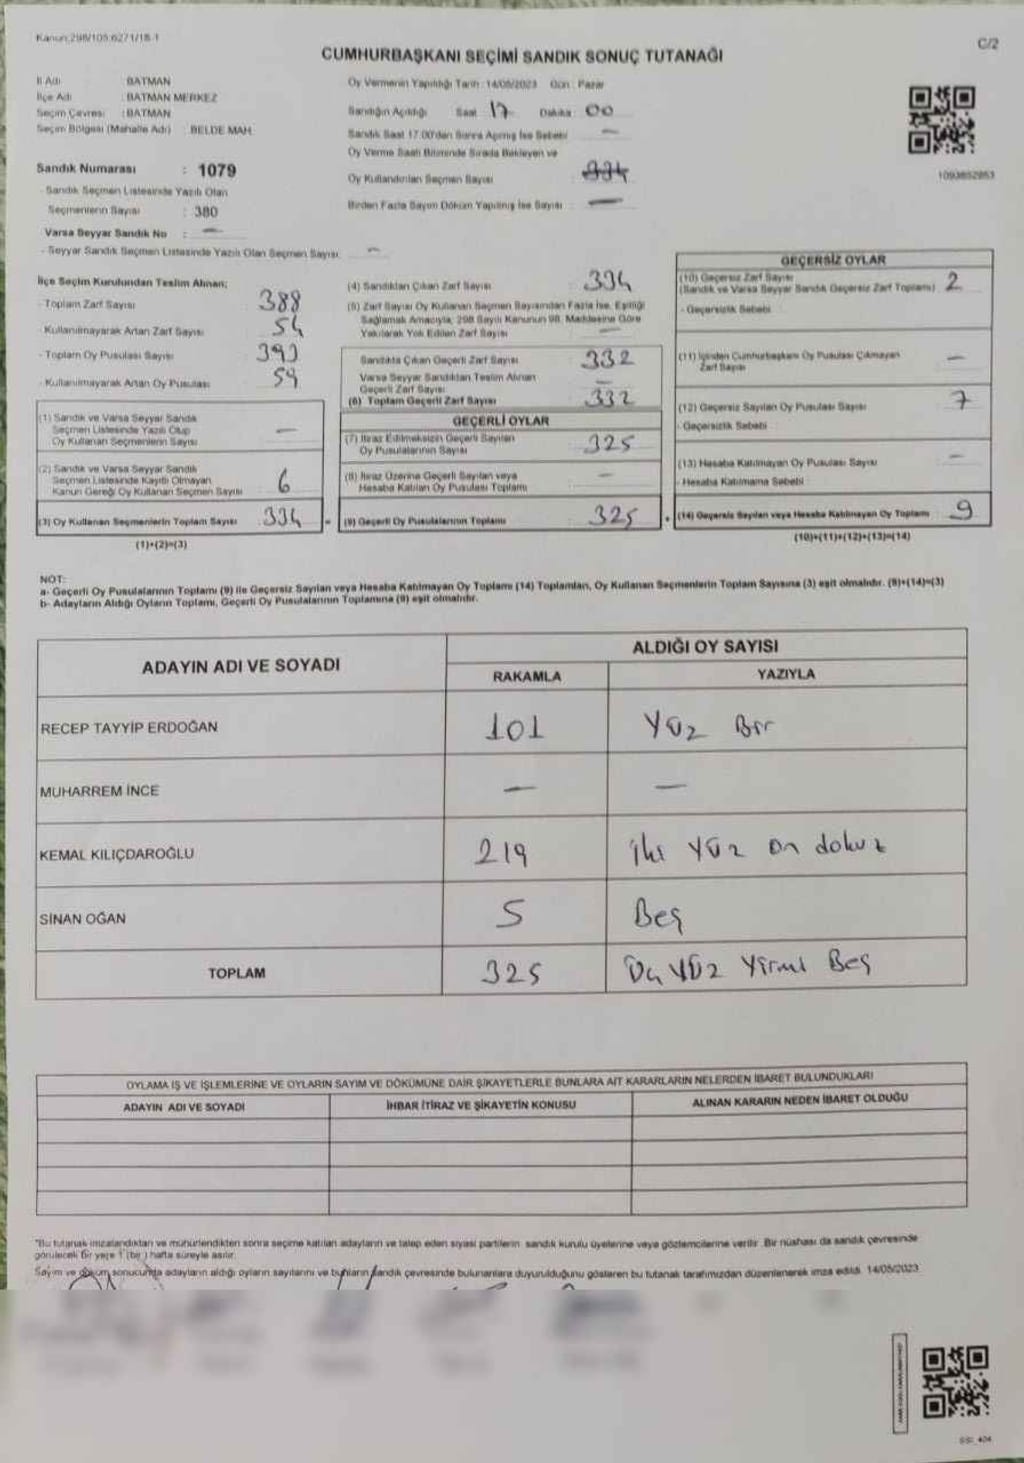 Kanun:298/105:6271/18-1
C/2
CUMHURBAŞKANI SEÇİMİ SANDIK SONUÇ TUTANAĞI
İl Adı : BATMAN
İlçe Adı : BATMAN MERKEZ
Seçim Çevresi : BATMAN
Seçim Bölgesi (Mahalle Adı) : BELDE MAH.
Sandık Numarası : 1079
- Sandık Seçmen Listesinde Yazılı Olan
Seçmenlerin Sayısı : 380
Varsa Seyyar Sandık No : -
- Seyyar Sandık Seçmen Listesinde Yazılı Olan Seçmen Sayısı: -
Oy Vermenin Yapıldığı Tarih : 14/05/2023 Gün : Pazar
Sandığın Açıldığı Saat : 17 Dakika : 00
Sandık Saat 17.00'den Sonra Açılmış İse Sebebi : -
Oy Verme Saati Bitiminde Sırada Bekleyen ve
Oy Kullandırılan Seçmen Sayısı :
Birden Fazla Sayım Döküm Yapılmış İse Sayısı : -
1093852853
İlçe Seçim Kurulundan Teslim Alınan;
- Toplam Zarf Sayısı : 388
- Kullanılmayarak Artan Zarf Sayısı : 54
- Toplam Oy Pusulası Sayısı : 393
- Kullanılmayarak Artan Oy Pusulası : 59
(1) Sandık ve Varsa Seyyar Sandık
Seçmen Listesinde Yazılı Olup
Oy Kullanan Seçmenlerin Sayısı : -
(2) Sandık ve Varsa Seyyar Sandık
Seçmen Listesinde Kayıtlı Olmayan
Kanun Gereği Oy Kullanan Seçmen Sayısı : 6
(3) Oy Kullanan Seçmenlerin Toplam Sayısı : 334
(1)+(2)=(3)
(4) Sandıktan Çıkan Zarf Sayısı : 334
(5) Zarf Sayısı Oy Kullanan Seçmen Sayısından Fazla İse, Eşitliği
Sağlamak Amacıyla; 298 Sayılı Kanunun 98. Maddesine Göre
Yakılarak Yok Edilen Zarf Sayısı : -
Sandıkta Çıkan Geçerli Zarf Sayısı : 332
Varsa Seyyar Sandıktan Teslim Alınan
Geçerli Zarf Sayısı : -
(6) Toplam Geçerli Zarf Sayısı : 332
GEÇERLİ OYLAR
(7) İtiraz Edilmeksizin Geçerli Sayılan
Oy Pusulalarının Sayısı : 325
(8) İtiraz Üzerine Geçerli Sayılan veya
Hesaba Katılan Oy Pusulası Toplamı : -
= (9) Geçerli Oy Pusulalarının Toplamı : 325
GEÇERSİZ OYLAR
(10) Geçersiz Zarf Sayısı
(Sandık ve Varsa Seyyar Sandık Geçersiz Zarf Toplamı) : 2
- Geçersizlik Sebebi :
(11) İçinden Cumhurbaşkanı Oy Pusulası Çıkmayan
Zarf Sayısı : -
(12) Geçersiz Sayılan Oy Pusulası Sayısı : 7
- Geçersizlik Sebebi :
(13) Hesaba Katılmayan Oy Pusulası Sayısı : -
- Hesaba Katılmama Sebebi :
+ (14) Geçersiz Sayılan veya Hesaba Katılmayan Oy Toplamı : 9
(10)+(11)+(12)+(13)=(14)
NOT:
a- Geçerli Oy Pusulalarının Toplamı (9) ile Geçersiz Sayılan veya Hesaba Katılmayan Oy Toplamı (14) Toplamları, Oy Kullanan Seçmenlerin Toplam Sayısına (3) eşit olmalıdır. (9)+(14)=(3)
b- Adayların Aldığı Oyların Toplamı, Geçerli Oy Pusulalarının Toplamına (9) eşit olmalıdır.
ADAYIN ADI VE SOYADI ALDIĞI OY SAYISI
RAKAMLA YAZIYLA
RECEP TAYYİP ERDOĞAN 101 Yüz Bir
MUHARREM İNCE - -
KEMAL KILIÇDAROĞLU 219 iki yüz on dokuz
SİNAN OĞAN 5 Beş
TOPLAM 325 Üç Yüz Yirmi Beş
OYLAMA İŞ VE İŞLEMLERİNE VE OYLARIN SAYIM VE DÖKÜMÜNE DAİR ŞİKAYETLERLE BUNLARA AİT KARARLARIN NELERDEN İBARET BULUNDUKLARI
ADAYIN ADI VE SOYADI İHBAR İTİRAZ VE ŞİKAYETİN KONUSU ALINAN KARARIN NEDEN İBARET OLDUĞU
*Bu tutanak imzalandıktan ve mühürlendikten sonra seçime katılan adayların ve talep eden siyasi partilerin sandık kurulu üyelerine veya gözlemcilerine verilir. Bir nüshası da sandık çevresinde
görülecek bir yere 1 (bir ) hafta süreyle asılır.
Sayım ve döküm sonucunda adayların aldığı oyların sayılarını ve bunların sandık çevresinde bulunanlara duyurulduğunu gösteren bu tutanak tarafımızdan düzenlenerek imza edildi. 14/05/2023